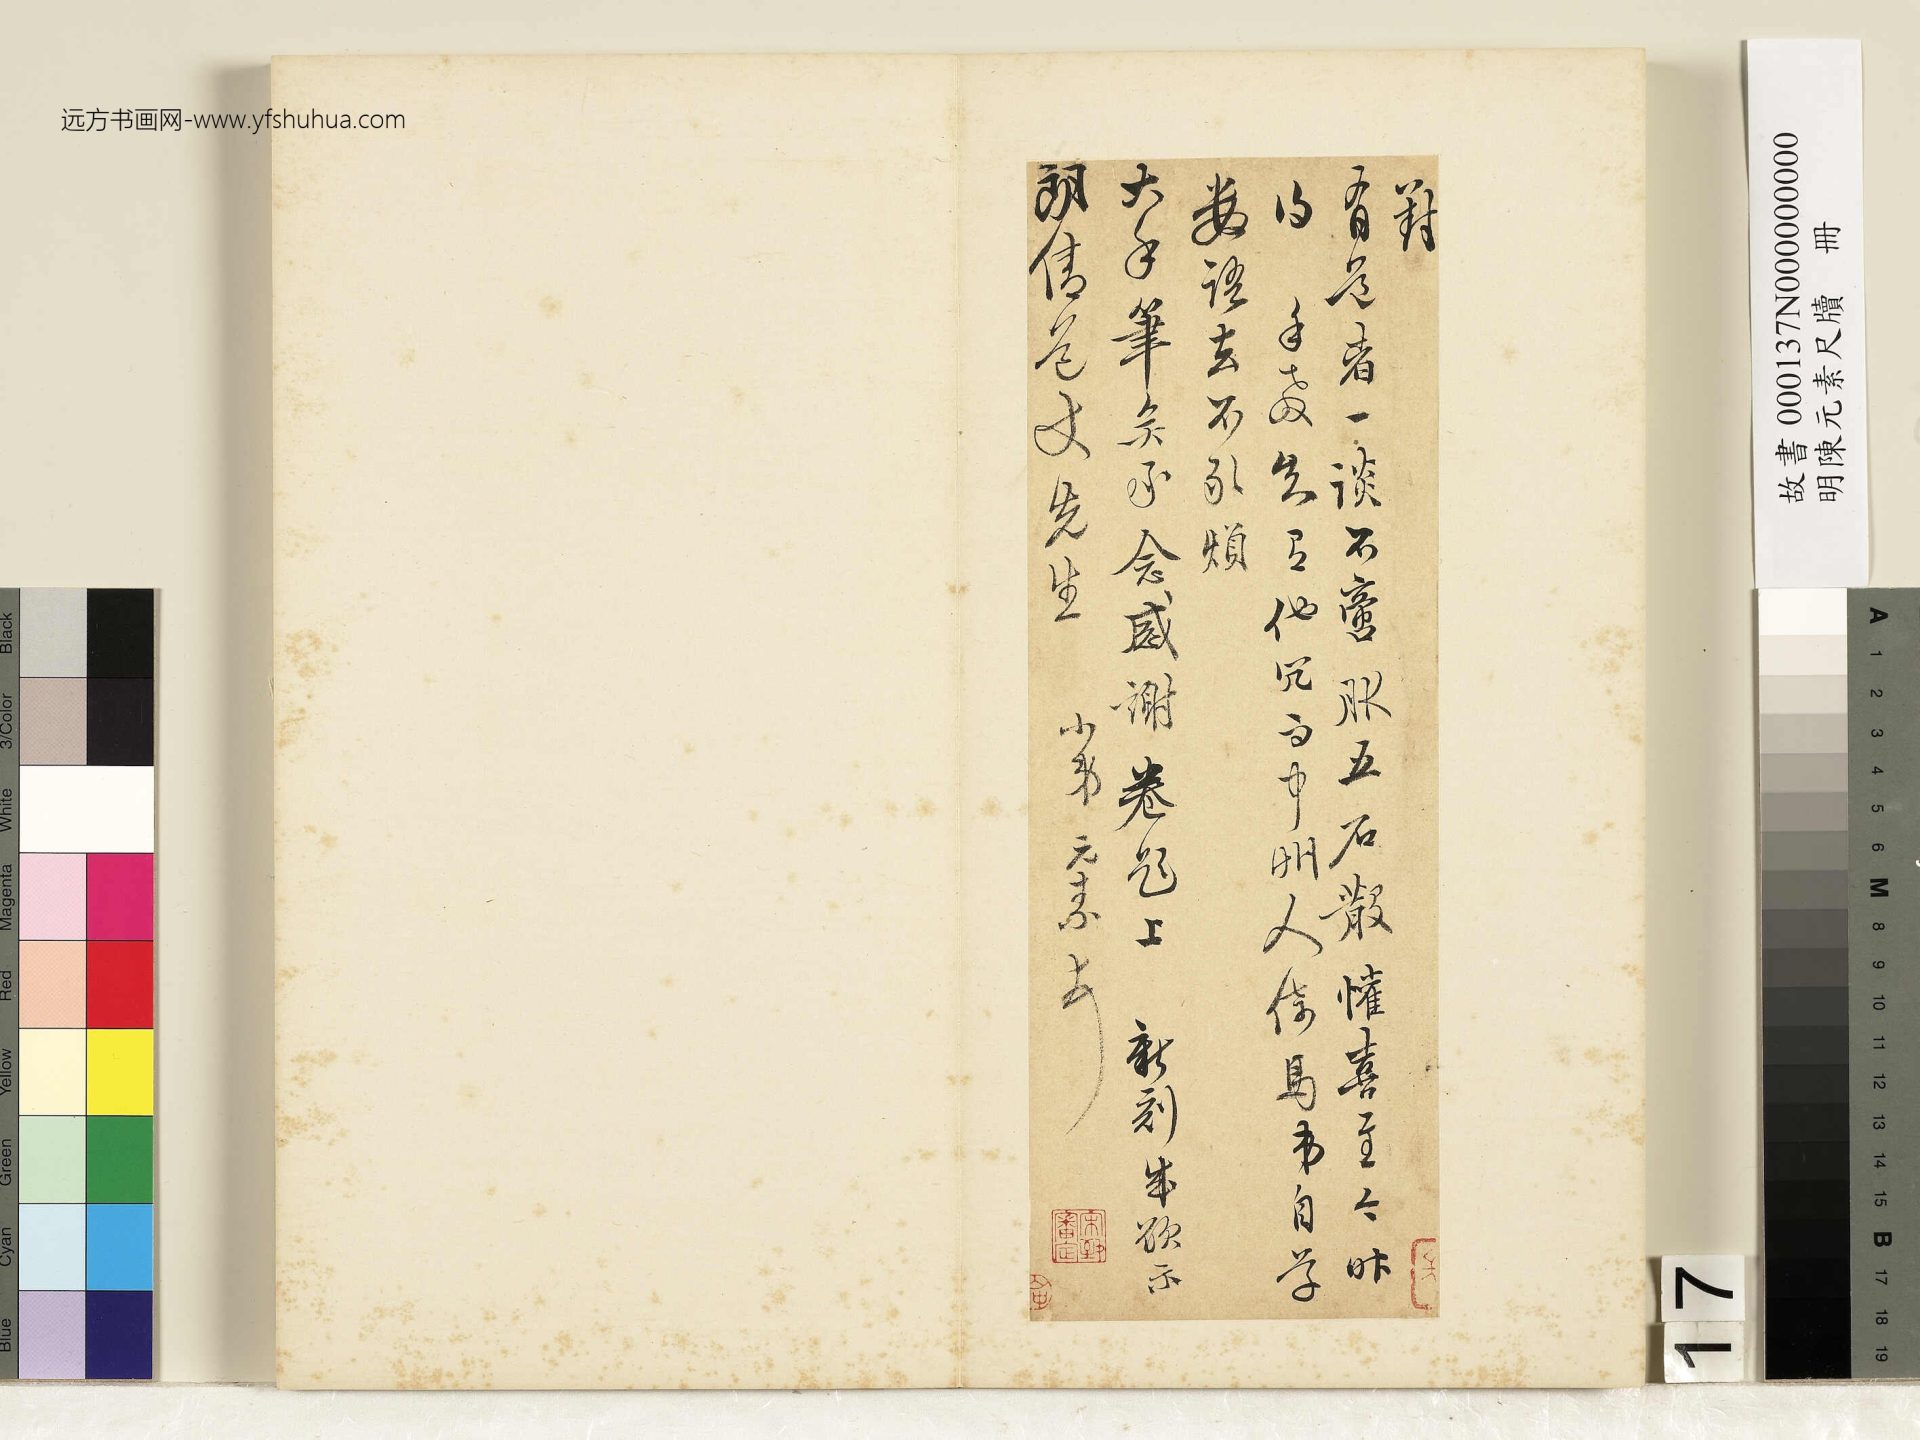 對
有道者一談不啻服五石散懽喜至今昨
得 手教失之他况而中州人倩馬弟自学
數語去不敢煩
大手筆矣承念感謝卷題上 新刻朱欲示
朗倩道丈先生
小弟元素
宋犖
審定
远方书画网-www.yfshuhua.com
故書 000137N000000000
明陳元素尺牘 冊
17
Black
3/Color
White
Magenta
Red
Yellow
Green
Cyan
Blue
A
1
2
3
4
5
6
M
8
9
10
11
12
13
14
15
B
17
18
19